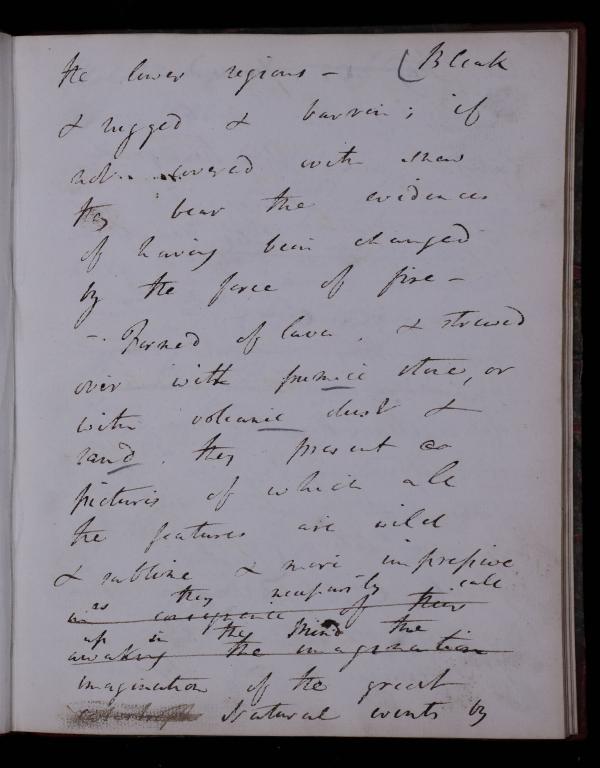 the lower regions – (Bleak
& rugged & barren; if
not covered with snow
they bear the evidences
of having been changed
by the force of fire –
– Formed of lava. & strewed
over with pumice stone, or
with volcanic dust &
sand. they present
pictures of which all
the features are wild
& sublime & more impressive
as they necessarily call
in consequence of their
up in the Mind the
awaking the imagination
imagination of the great
Natural events by